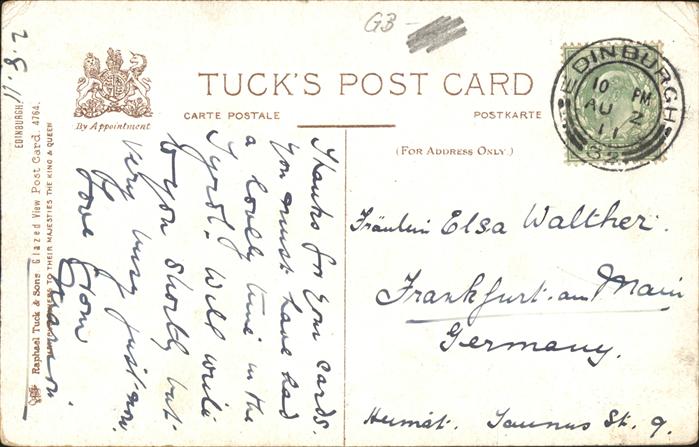 GB
TUCK'S POST CARD
CARTE POSTALE
POSTKARTE
(FOR ADDRESS ONLY.)
By Appointment
EDINBURGH
10 PM
AU 2
11
Thanks for your cards.
You must have had
a lovely time in the
Tyrol. Will write
to you shortly but
very busy just now.
Love from
Fräulein Elsa Walther.
Frankfurt-am Main
Germany.
Heimat. Taunus St. 9.
2.8.11
EDINBURGH.
Raphael Tuck & Sons Glazed View Post Card. 4764.
TO THEIR MAJESTIES THE KING & QUEEN